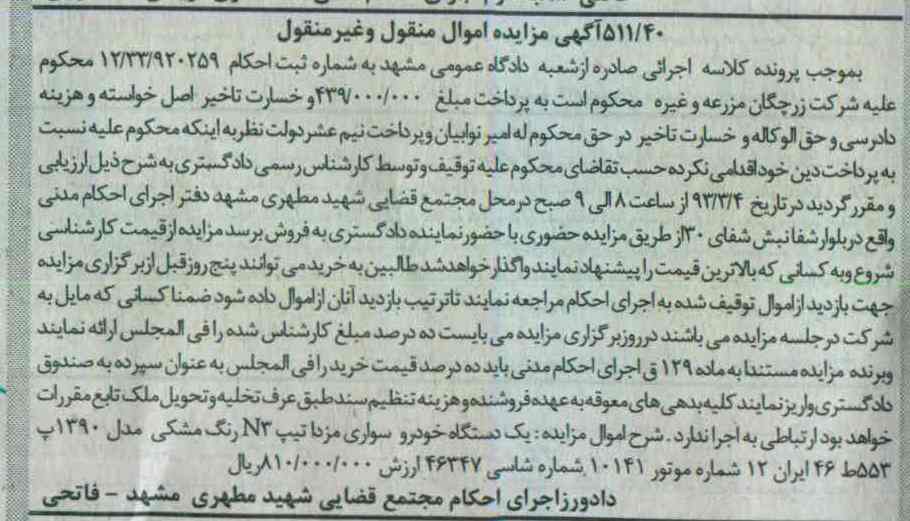 ۵۱۱/۴۰آگهی مزایده اموال منقول وغیرمنقول
بموجب پرونده کلاسه اجرائی صادره ازشعبه دادگاه عمومی مشهد به شماره ثبت احکام ۱۲/۳۳/۹۲۰۲۵۹ محکوم
علیه شرکت زرچگان مزرعه و غیره محکوم است به پرداخت مبلغ ۴۳۹/۰۰۰/۰۰۰و خسارت تاخیر اصل خواسته و هزینه
دادرسی و حق الوکاله و خسارت تاخیر در حق محکوم له امیر نوابیان وپرداخت نیم عشردولت نظربه اینکه محکوم علیه نسبت
به پرداخت دین خوداقدامی نکرده حسب تقاضای محکوم علیه توقیف وتوسط کارشناس رسمی دادگستری به شرح ذیل ارزیابی
و مقررگردید درتاریخ ۹۳/۳/۴ از ساعت ۸ الی ۹ صبح درمحل مجتمع قضایی شهید مطهری مشهد دفتر اجرای احکام مدنی
واقع دربلوارشفانبش شفای ۳۰از طریق مزایده حضوری با حضورنماینده دادگستری به فروش برسد مزایده ازقیمت کارشناسی
شروع وبه کسانی که بالاترین قیمت را پیشنهاد نمایند واگذارخواهدشد طالبین به خرید می توانند پنج روزقبل ازبرگزاری مزایده
جهت بازدید ازاموال توقیف شده به اجرای احکام مراجعه نمایند تاترتیب بازدید آنان ازاموال داده شود ضمنا کسانی که مایل به
شرکت درجلسه مزایده می باشند درروزبرگزاری مزایده می بایست ده درصد مبلغ کارشناس شده را فی المجلس ارائه نمایند
وبرنده مزایده مستندا به ماده ۱۲۹ ق اجرای احکام مدنی باید ده درصد قیمت خرید را فی المجلس به عنوان سپرده به صندوق
دادگستری واریزنمایند کلیه بدهی های معوقه به عهده فروشنده وهزینه تنظیم سند طبق عرف تخلیه وتحویل ملک تابع مقررات
خواهد بود ارتباطی به اجرا ندارد . شرح اموال مزایده : یک دستگاه خودرو سواری مزدا تیپ N۳ رنگ مشکی مدل ۱۳۹۰پ
۵۵۳ط ۴۶ ایران ۱۲ شماره موتور ۱۰۱۴۱ شماره شاسی ۴۶۳۴۷ ارزش ۸۱۰/۰۰۰/۰۰۰ریال
دادورزاجرای احکام مجتمع قضایی شهید مطهری مشهد – فاتحی